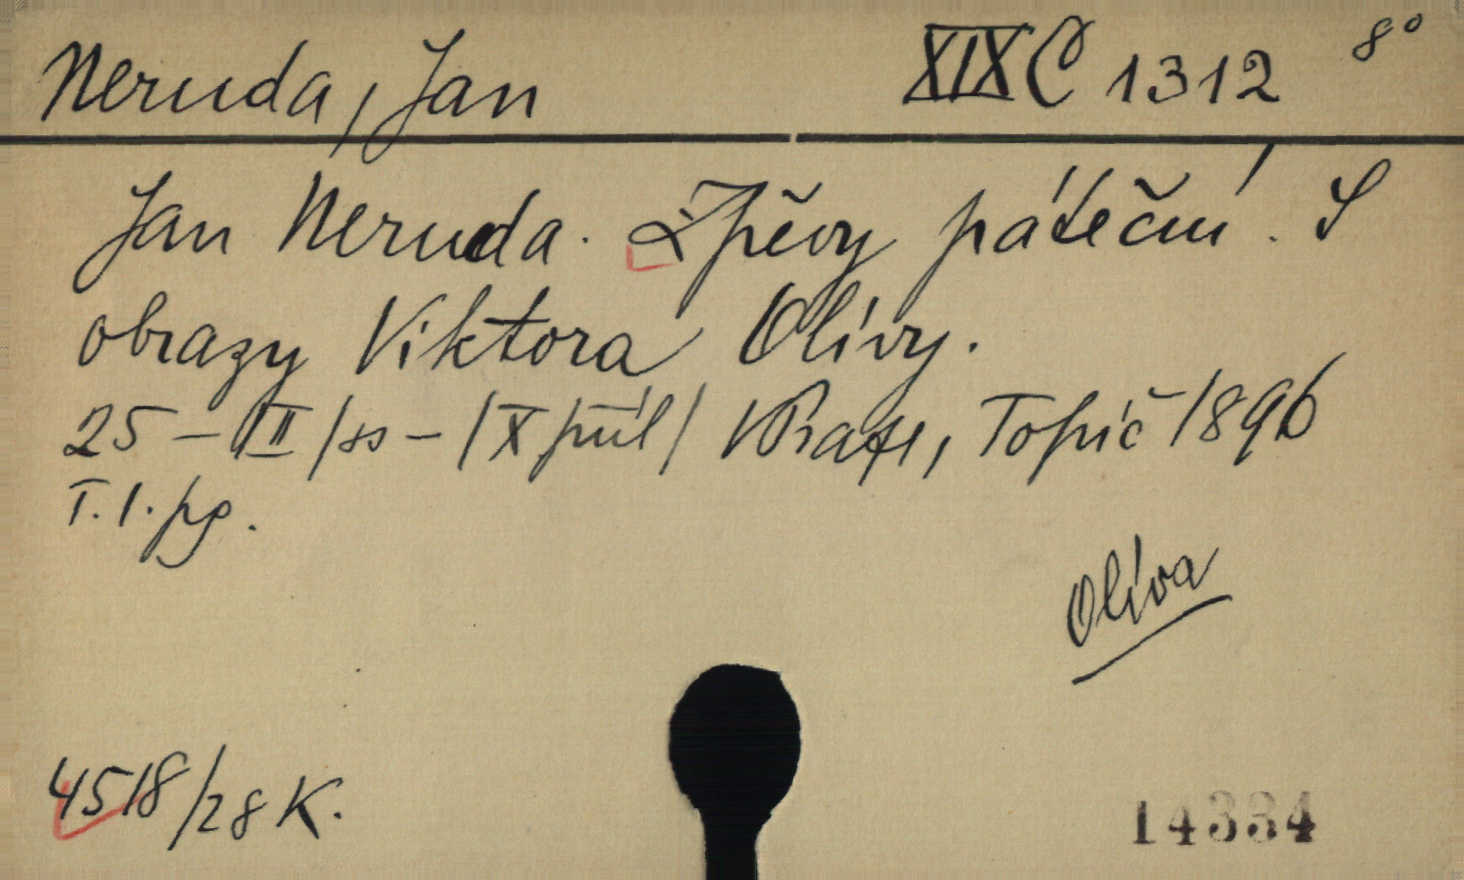 Neruda, Jan XIX C 1312 8°
Jan Neruda. Zpěvy páteční. S
obrazy Viktora Olívy.
25 - II /ss - / X příl / V Praze, Topič 1896
T. 1. pg.
Olíva
4518/28 K.
14334